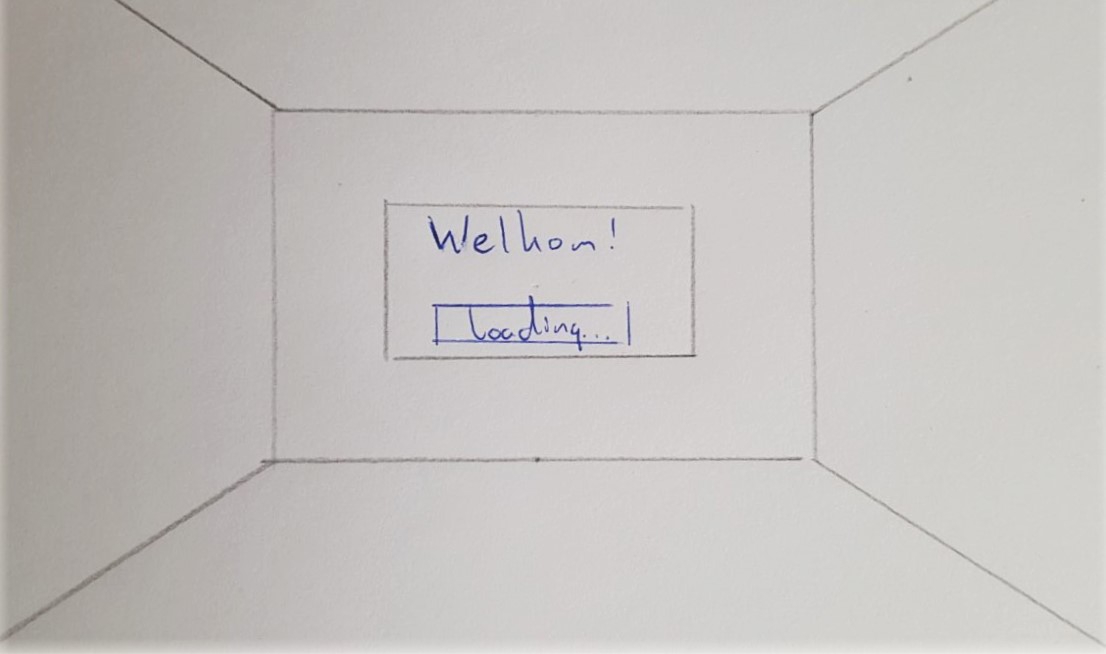 Welkom!
loading...